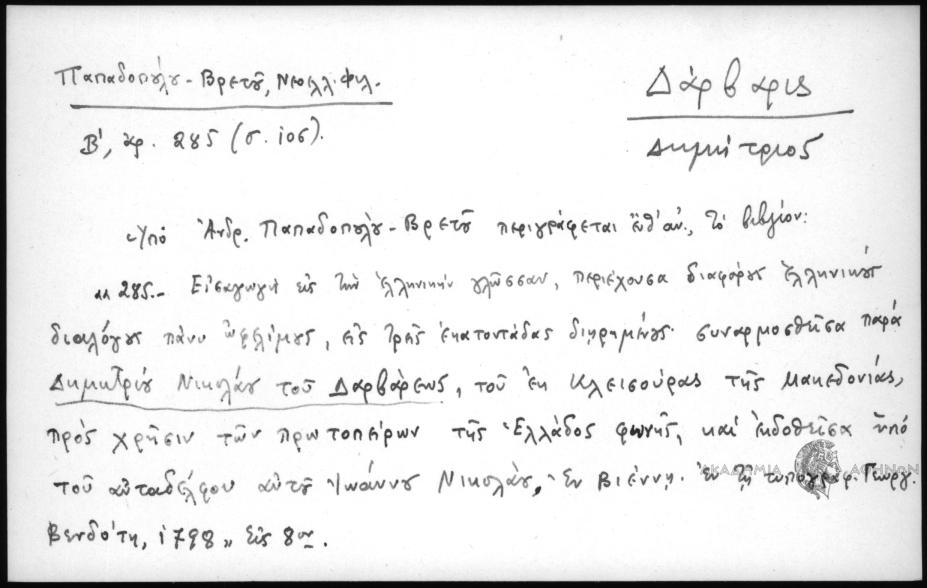 Παπαδοπούλου - Βρετοῦ, Νεοελλ. Φιλ.
Β', ἀρ. 285 (σ. 106).
Δάρβαρις
Δημήτριος
Ὑπό Ἀνδρ. Παπαδοπούλου - Βρετοῦ περιγράφεται ἔνθ' ἀν., τό βιβλίον:
"285.- Εἰσαγωγή εἰς τήν ἑλληνικήν γλῶσσαν, περιέχουσα διαφόρους ἑλληνικούς
διαλόγους πάνυ ὠφελίμους, εἰς τρεῖς ἑκατοντάδας διῃρημένους· συναρμοσθεῖσα παρά
Δημητρίου Νικολάου τοῦ Δαρβάρεως, τοῦ ἐκ Κλεισούρας τῆς Μακεδονίας,
πρός χρῆσιν τῶν πρωτοπείρων τῆς Ἑλλάδος φωνῆς, καί ἐκδοθεῖσα ὑπό
τοῦ αὐταδέλφου αὐτοῦ Ἰωάννου Νικολάου, Ἐν Βιέννῃ. ἐν τῇ τυπογραφ. Γεωργ.
Βενδότη, 1798" εἰς 8ον.
ΑΚΑΔΗΜΙΑ ΑΘΗΝΩΝ